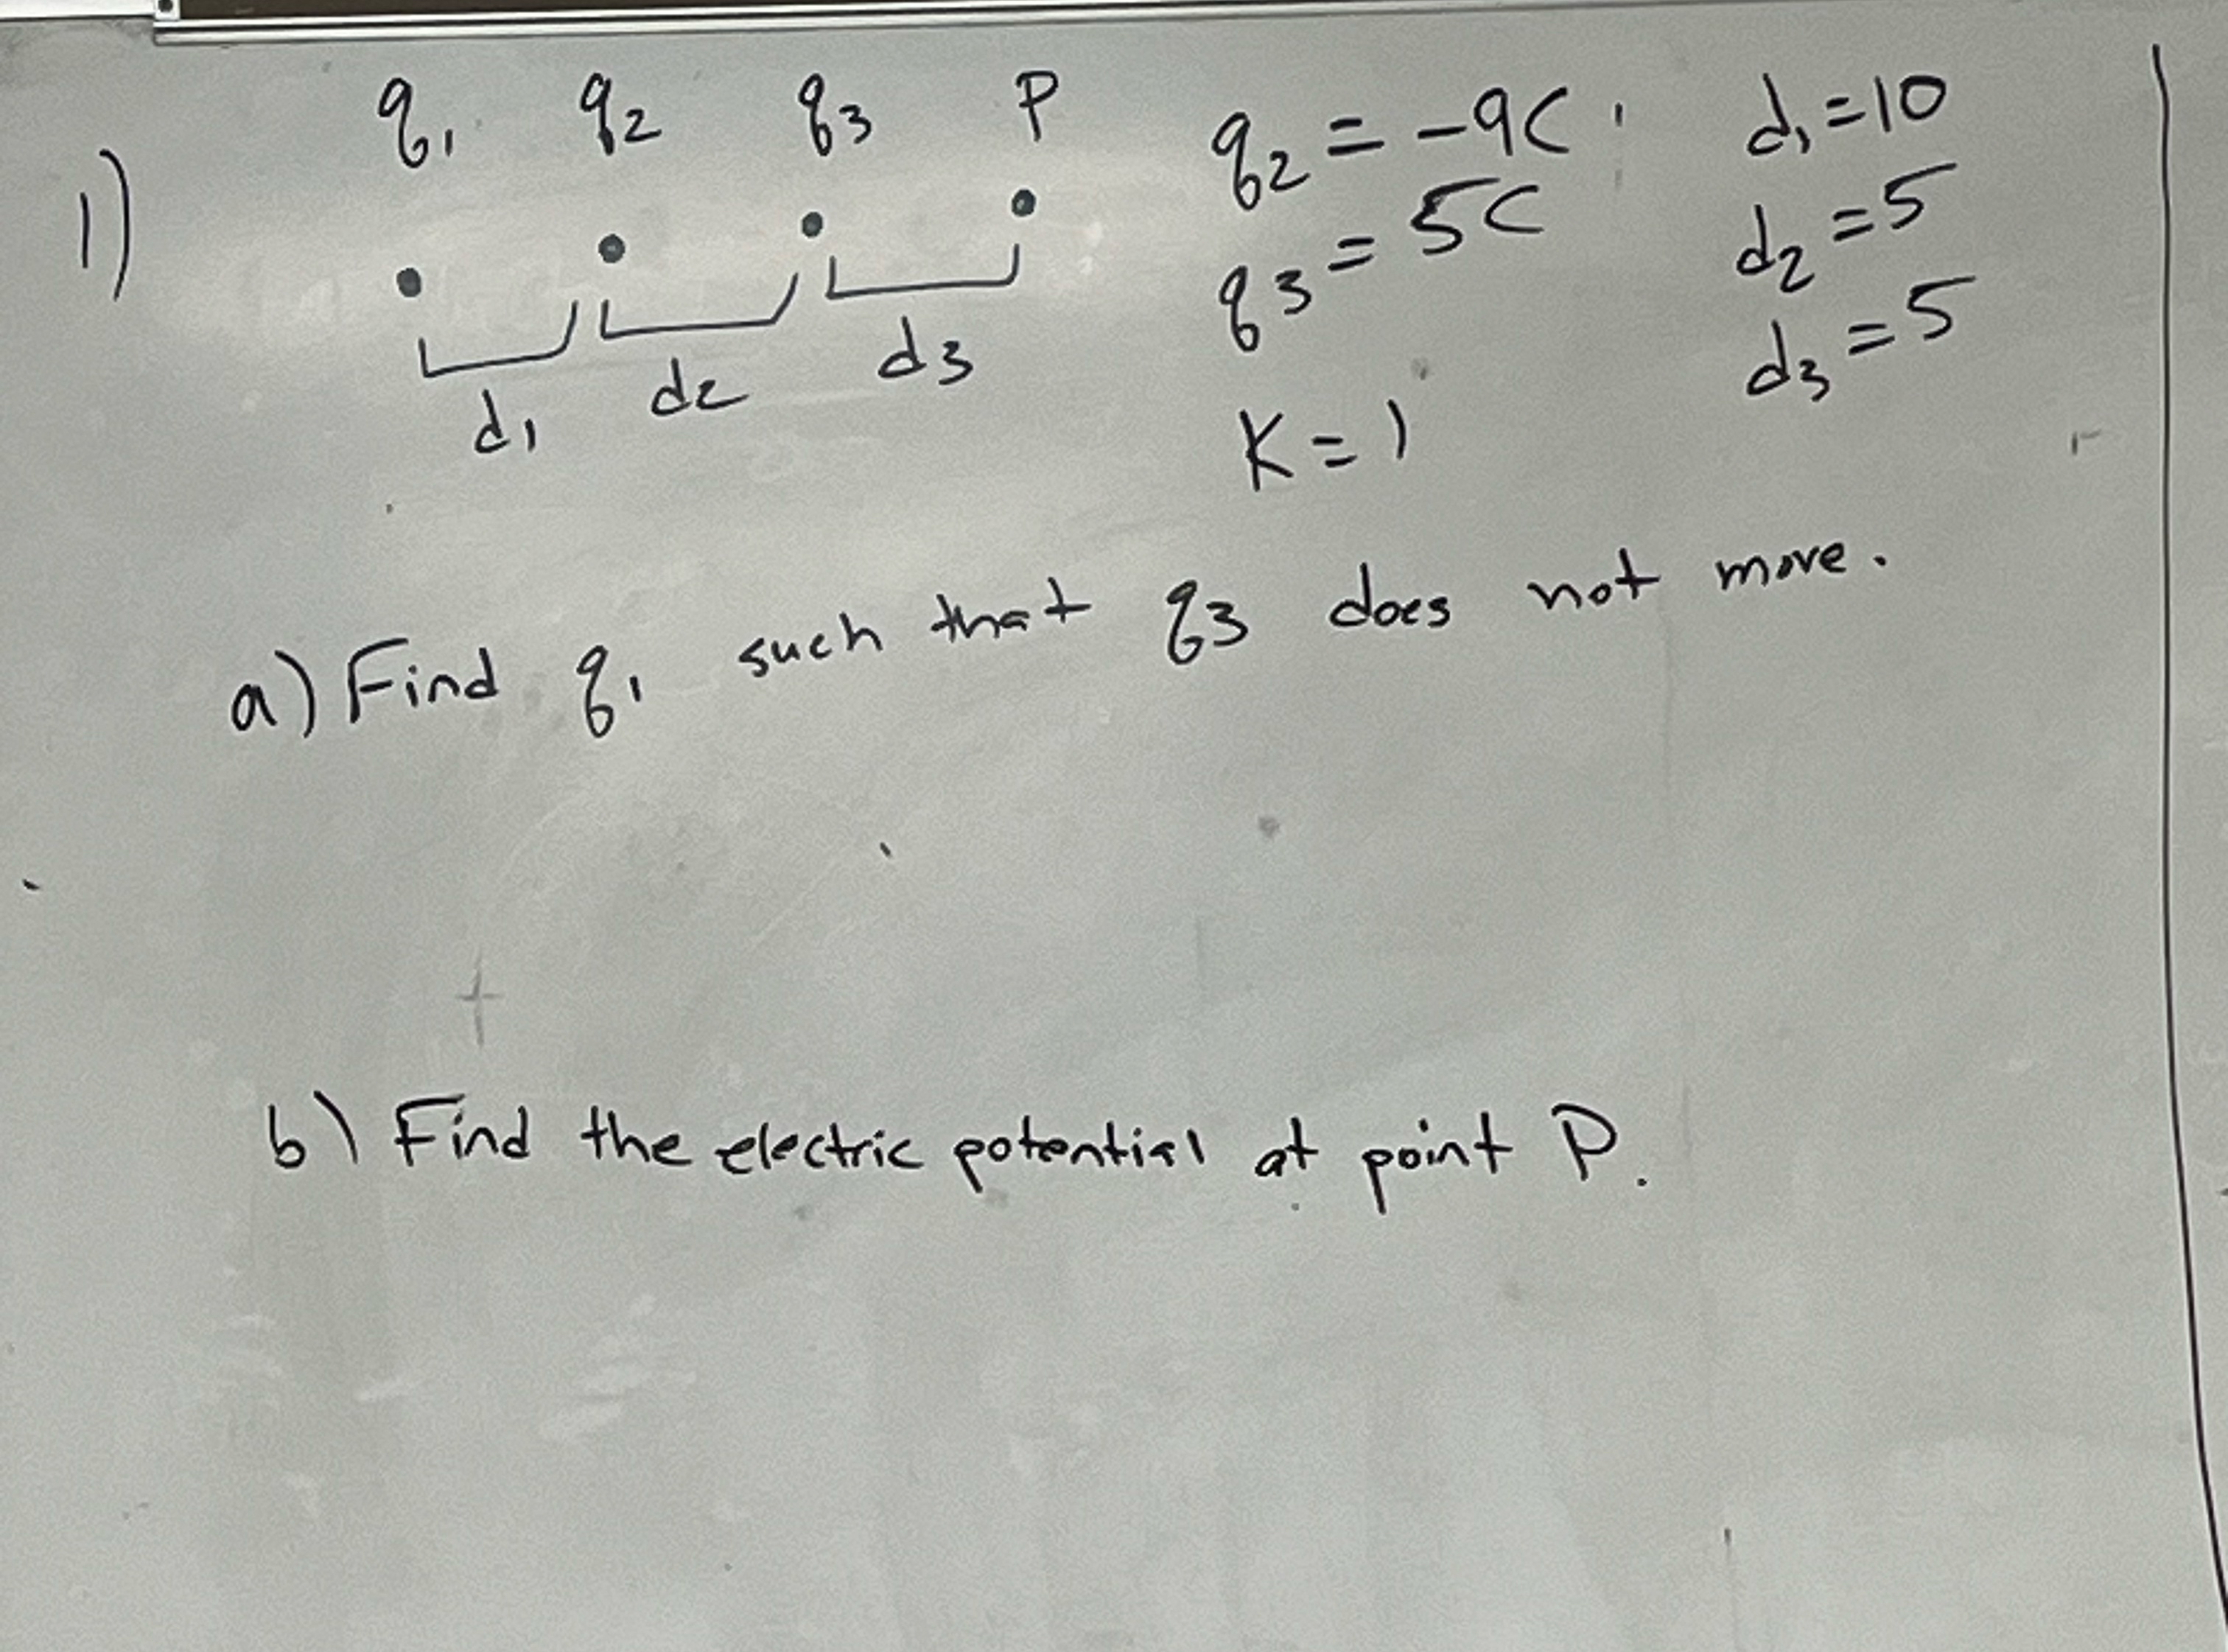 1) q1 q2 q3 P
d1 d2 d3
q2 = -9C
q3 = 5C
K = 1
d1 = 10
d2 = 5
d3 = 5
a) Find q1 such that q3 does not move.
b) Find the electric potential at point P.